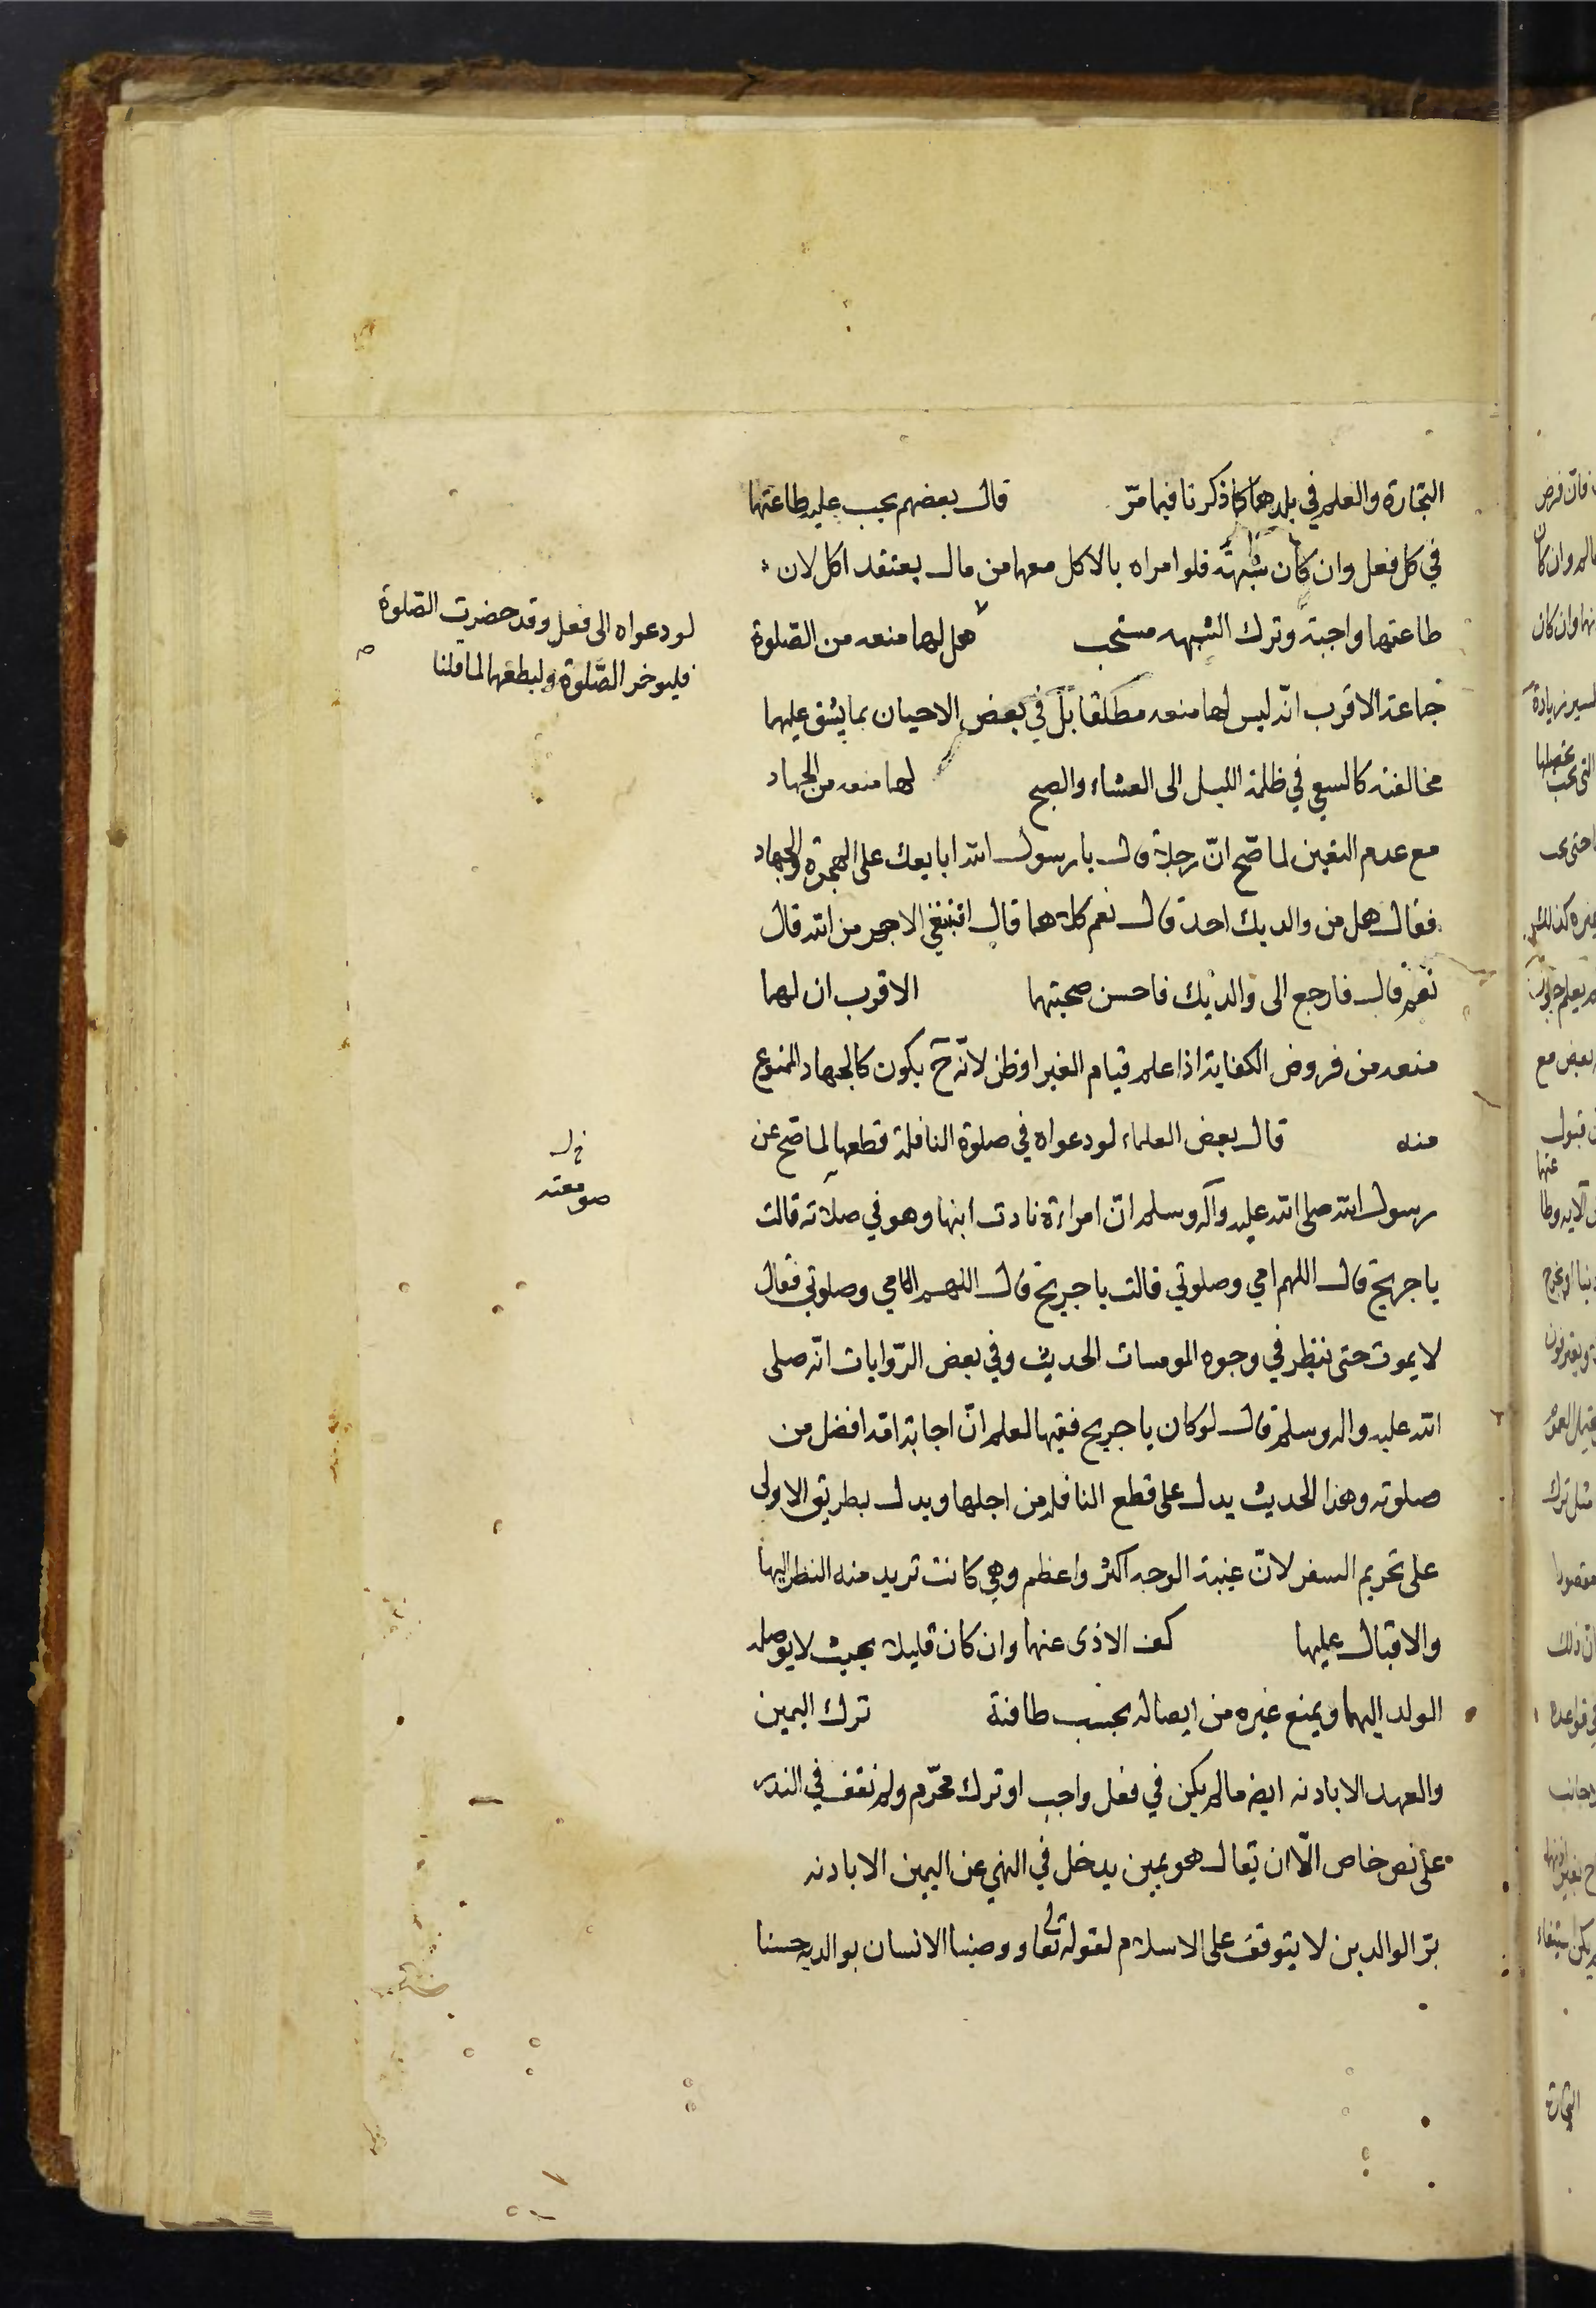 التجارة والعلم في بلدهما كما ذكرنا فيما مرّ قال بعضهم يجب عليه طاعتهما
في كل فعل وان كان شبهة فلو امراه بالاكل معهما من مال يعتقد اكل لان
طاعتهما واجبة وترك الشبهه مستحب هل لهما منعه من الصّلوة
جماعة الاقرب انّه ليس لهما منعه مطلقا بل في بعض الاحيان بما يشق عليهما
مخالفته كالسعي في ظلمة الليل الى العشاء والصبح لهما منعه من الجهاد
مع عدم التعين لما صّح انّ رجلا قال يا رسول الله ابايعك على الهجرة والجهاد
فقال هل من والديك احد قال نعم كلاهما قال افتبتغي الاجر من الله قال
نعم قال فارجع الى والديك فاحسن صحبتهما الاقرب ان لهما
منعه من فروض الكفاية اذا علم قيام الغير او ظن لانّه ح يكون كالجهاد الممنوع
منه قال بعض العلماء لو دعواه في صلوة النافلة قطعها لما صّح عن
رسول الله صلى الله عليه وآله وسلم انّ امراءة نادت ابنها وهو في صلاته قالت
يا جريح قال اللهم امي وصلوتي قالت يا جريح قال اللهم امي وصلوتي فقال
لا يموت حتى ننظر في وجوه المومسات الحديث وفي بعض الرّوايات انّه صلى
الله عليه واله وسلم قال لو كان يا جريح فقيها لعلم انّ اجابة امّه افضل من
صلوته وهذا الحديث يدل على قطع النافلة من اجلها ويدل بطريق الاولى
على تحريم السفر لانّ غيبة الوجه اكثر واعظم وهي كانت تريد منه النظر اليها
والاقبال عليها كف الاذى عنهما وان كان قليلا بحيث لا يوصله
الولد اليهما ويمنع غيره من ايصاله بحسب طاقته ترك اليمين
والعهد الا باذنه ايضا ما لم يكن في فعل واجب او ترك محرّم ولم نقف في النذر
على نص خاص الّا ان يقال هو يمين يدخل في النهي عن اليمين الا باذنه
برّ الوالدين لا يتوقف على الاسلام لقوله تعالى ووصينا الانسان بوالديه حسنا
لو دعواه الى فعل وقد حضرت الصّلوة
فليوخر الصّلوة وليطعهما لما قلنا
صومعته